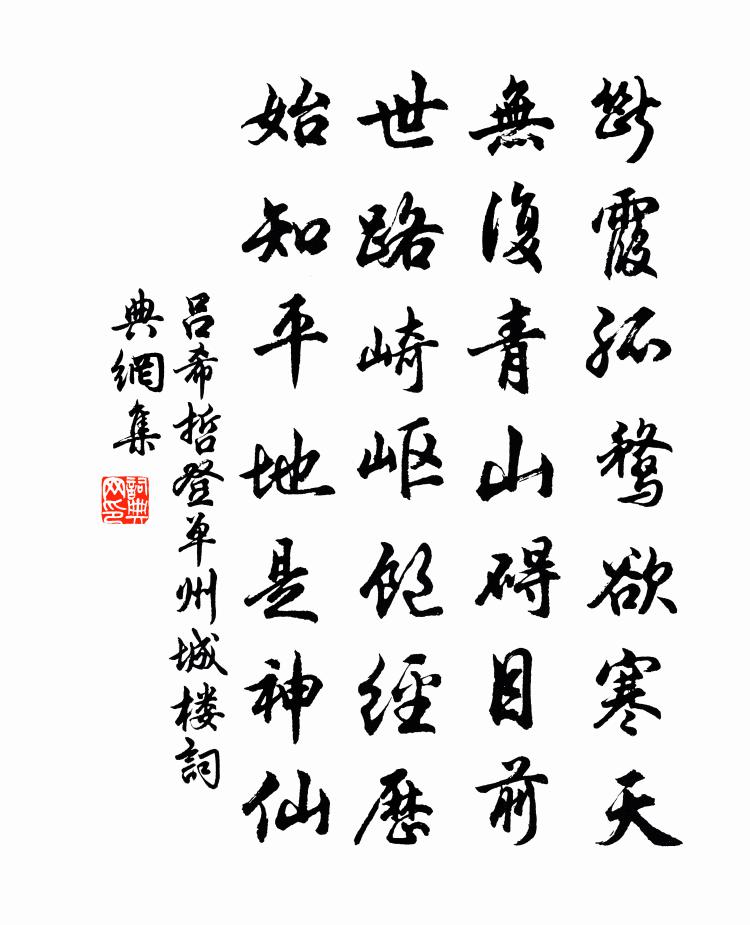 断霞孤鹜欲寒天
無復青山碍目前
世路崎岖饱經歷
始知平地是神仙
吕希哲登单州城楼詞
典網集
詞典网印